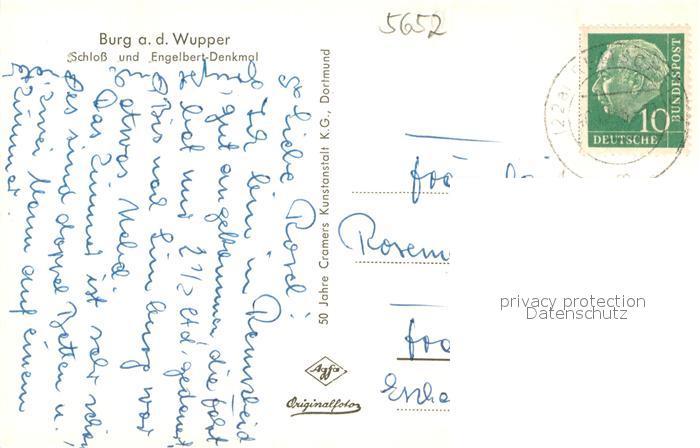 5652
Burg a. d. Wupper
Schloß und Engelbert-Denkmal
Liebe Rosel!
Ich bin in Remscheid
gut angekommen die Fahrt
hat nur 2 1/2 Std. gedauert
Bis nach Limburg war
etwas Nebel.
Das Zimmer ist sehr schön
Es sind doppel Betten u.
zwei Mann auf einem
Zimmer.
50 Jahre Cramers Kunstanstalt K.G., Dortmund
Agfa
Originalfoto
DEUTSCHE
BUNDESPOST
10
(22a)
Rosem
Escha
privacy protection
Datenschutz